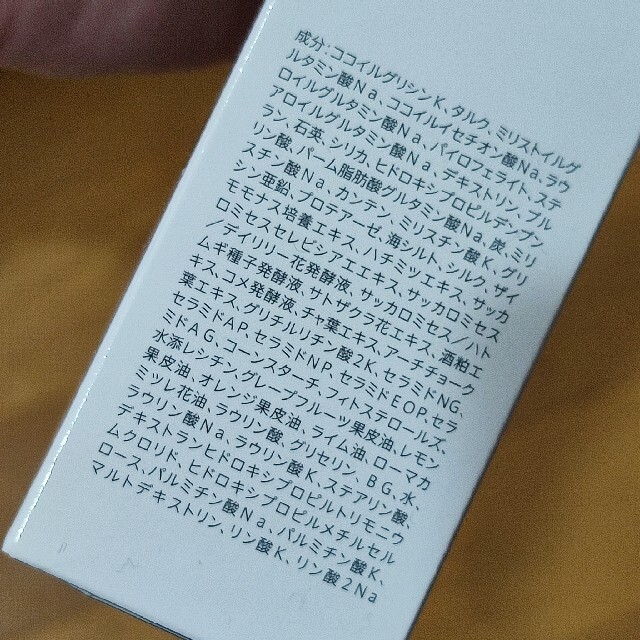 成分:ココイルグリシンK、タルク、ミリストイルグ
ルタミン酸Na、ココイルイセチオン酸Na、ラウ
ロイルグルタミン酸Na、パイロフェライト、ステ
アロイルグルタミン酸Na、デキストリン、プル
ラン、石英、シリカ、ヒドロキシプロピルデンプン
リン酸、パーム脂肪酸グルタミン酸Na、炭、ミリ
スチン酸Na、カンテン、ミリスチン酸K、グリ
シン亜鉛、プロテアーゼ、海シルト、シルク、ザイ
モモナス培養エキス、ハチミツエキス、サッカ
ロミセスセレビシアエエキス、サッカロミセス
/デイリリー花発酵液、サッカロミセス/ハト
ムギ種子発酵液、サトザクラ花エキス、酒粕エ
キス、コメ発酵液、チャ葉エキス、アーチチョーク
葉エキス、グリチルリチン酸2K、セラミドNG、
セラミドAP、セラミドNP、セラミドEOP、セラ
ミドAG、コーンスターチ、フィトステロールズ、
水添レシチン、グレープフルーツ果皮油、レモン
果皮油、オレンジ果皮油、ライム油、ローマカ
ミツレ花油、ラウリン酸、グリセリン、BG、水、
ラウリン酸Na、ラウリン酸K、ステアリン酸、
デキストランヒドロキシプロピルトリモニウ
ムクロリド、ヒドロキシプロピルメチルセル
ロース、パルミチン酸Na、パルミチン酸K、
マルトデキストリン、リン酸K、リン酸2Na